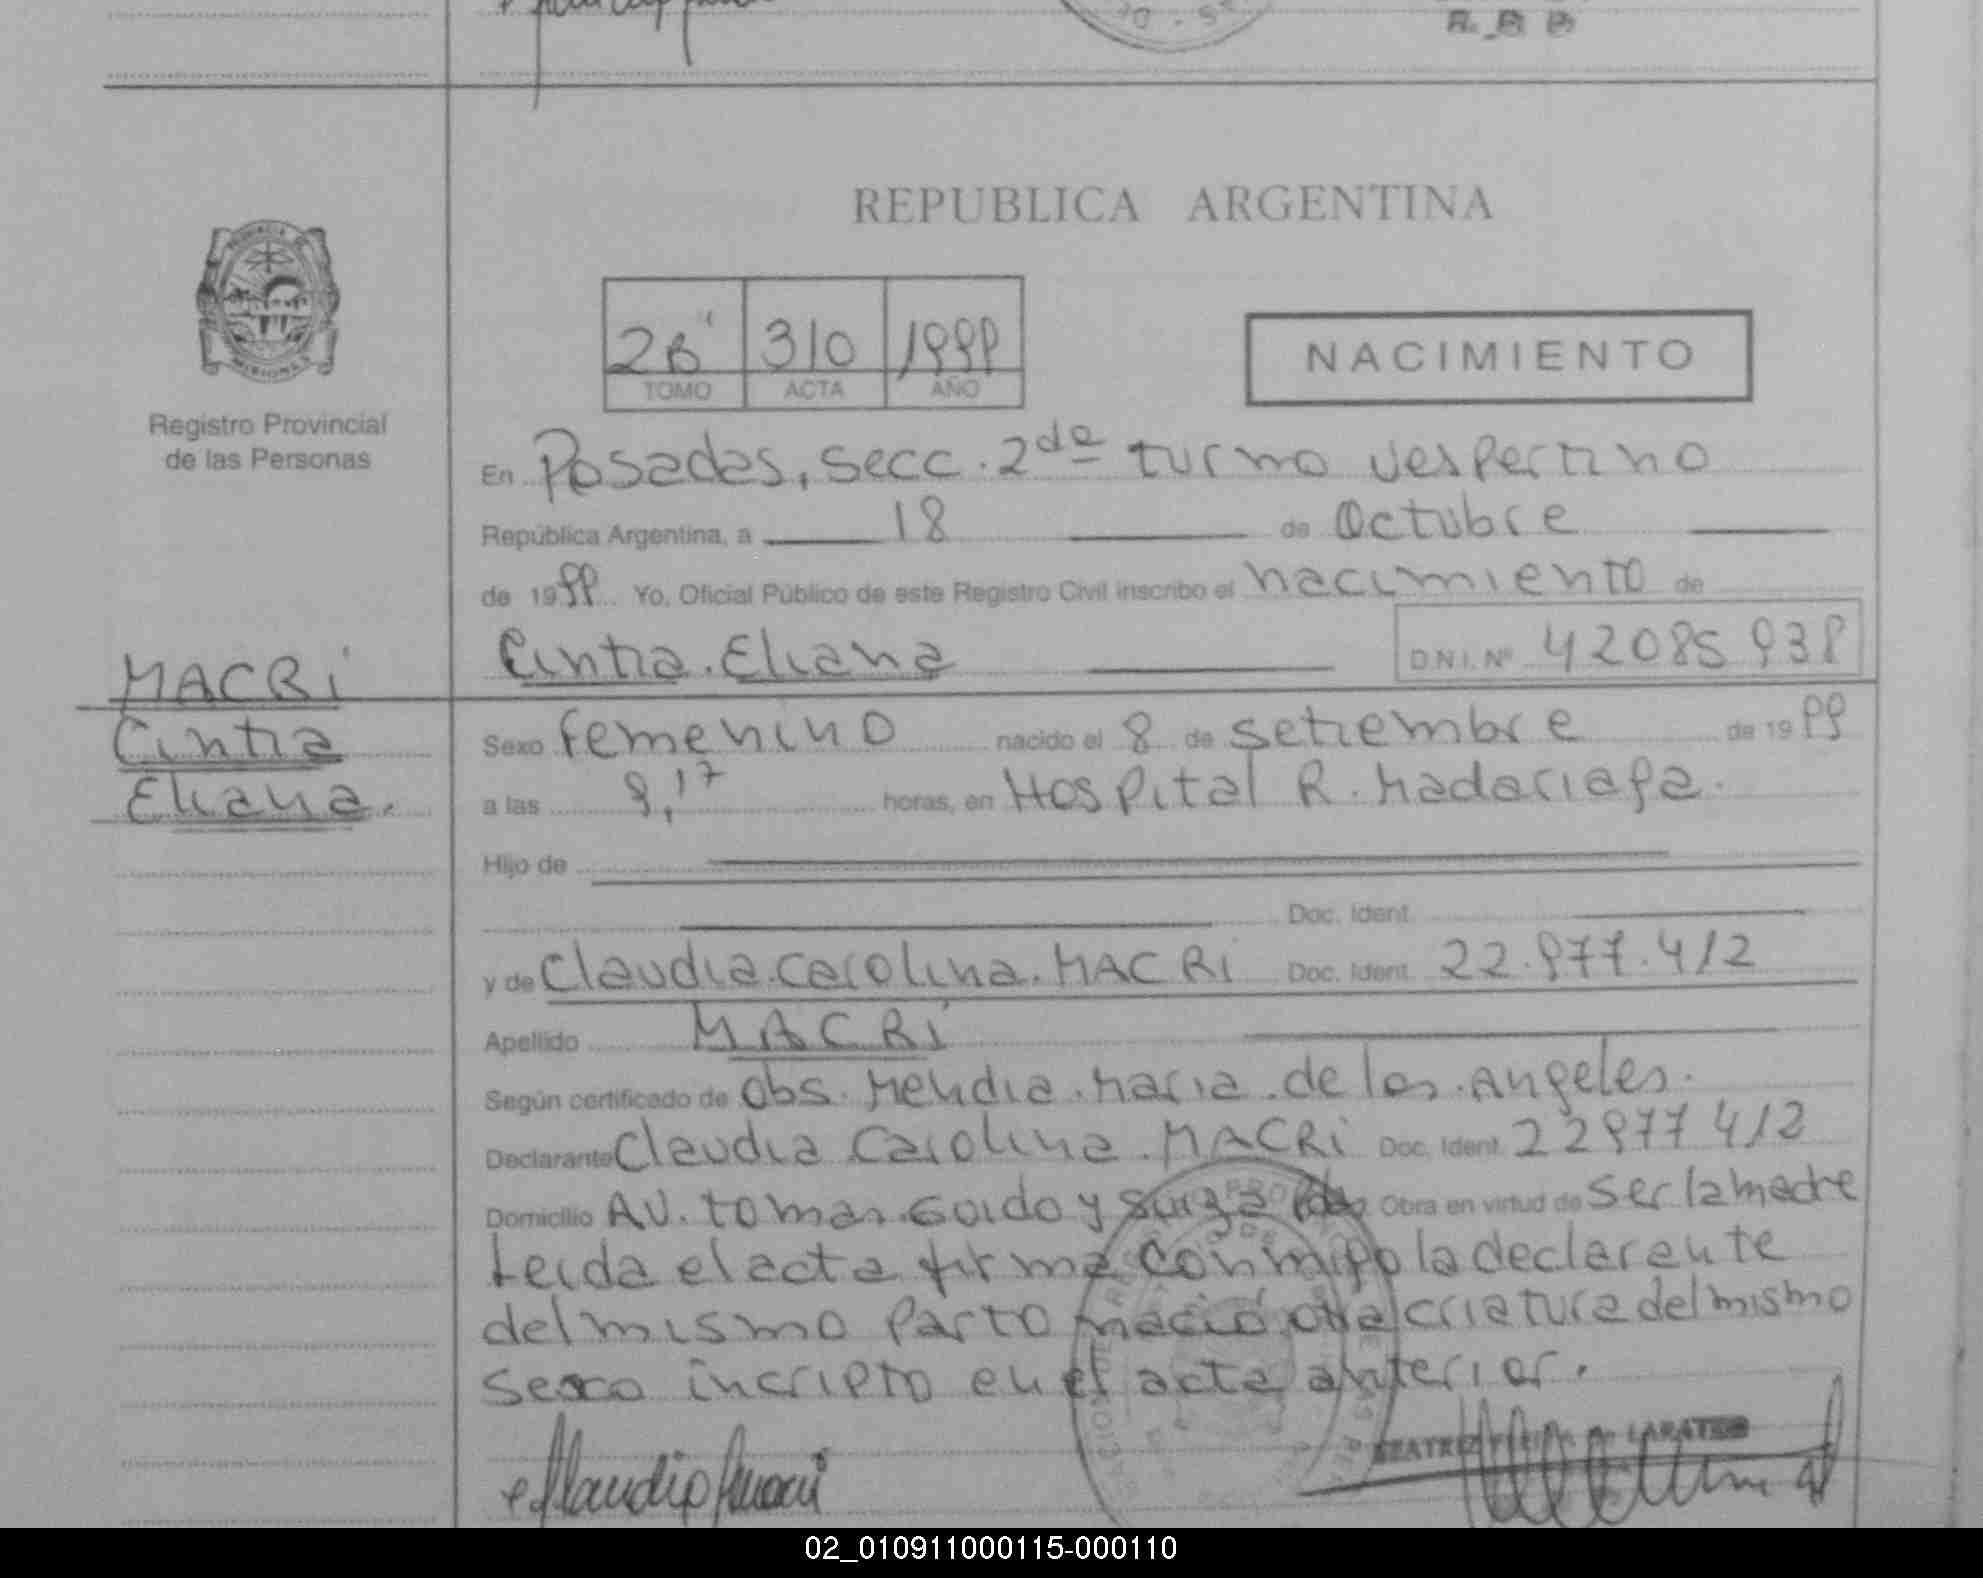 REPUBLICA ARGENTINA
PROVINCIA DE MISIONES
Registro Provincial
de las Personas
2B" 310 1999
TOMO ACTA AÑO
NACIMIENTO
En Posadas, secc. 2da turno vespertino
República Argentina, a 18 de Octubre
de 1999 Yo, Oficial Público de este Registro Civil inscribo el nacimiento de
Cintia Eliana D.N.I. Nº 42085938
MACRI
Cintia
Eliana.
Sexo femenino nacido el 8 de setiembre de 1999
a las 9,17 horas, en Hospital R. Madariaga.
Hijo de
Doc. Ident.
y de Claudia Carolina MACRI Doc. Ident. 22.977.412
Apellido MACRI
Según certificado de Obs. Mendia Maria de los Angeles.
Declarante Claudia Carolina MACRI Doc. Ident. 22977412
Domicilio AV. tomas Guido y Obra en virtud de ser la madre
Leida el acta firma conmigo la declarante
del mismo parto nació otra criatura del mismo
sexo incripto en el acta anterior.
02_010911000115-000110